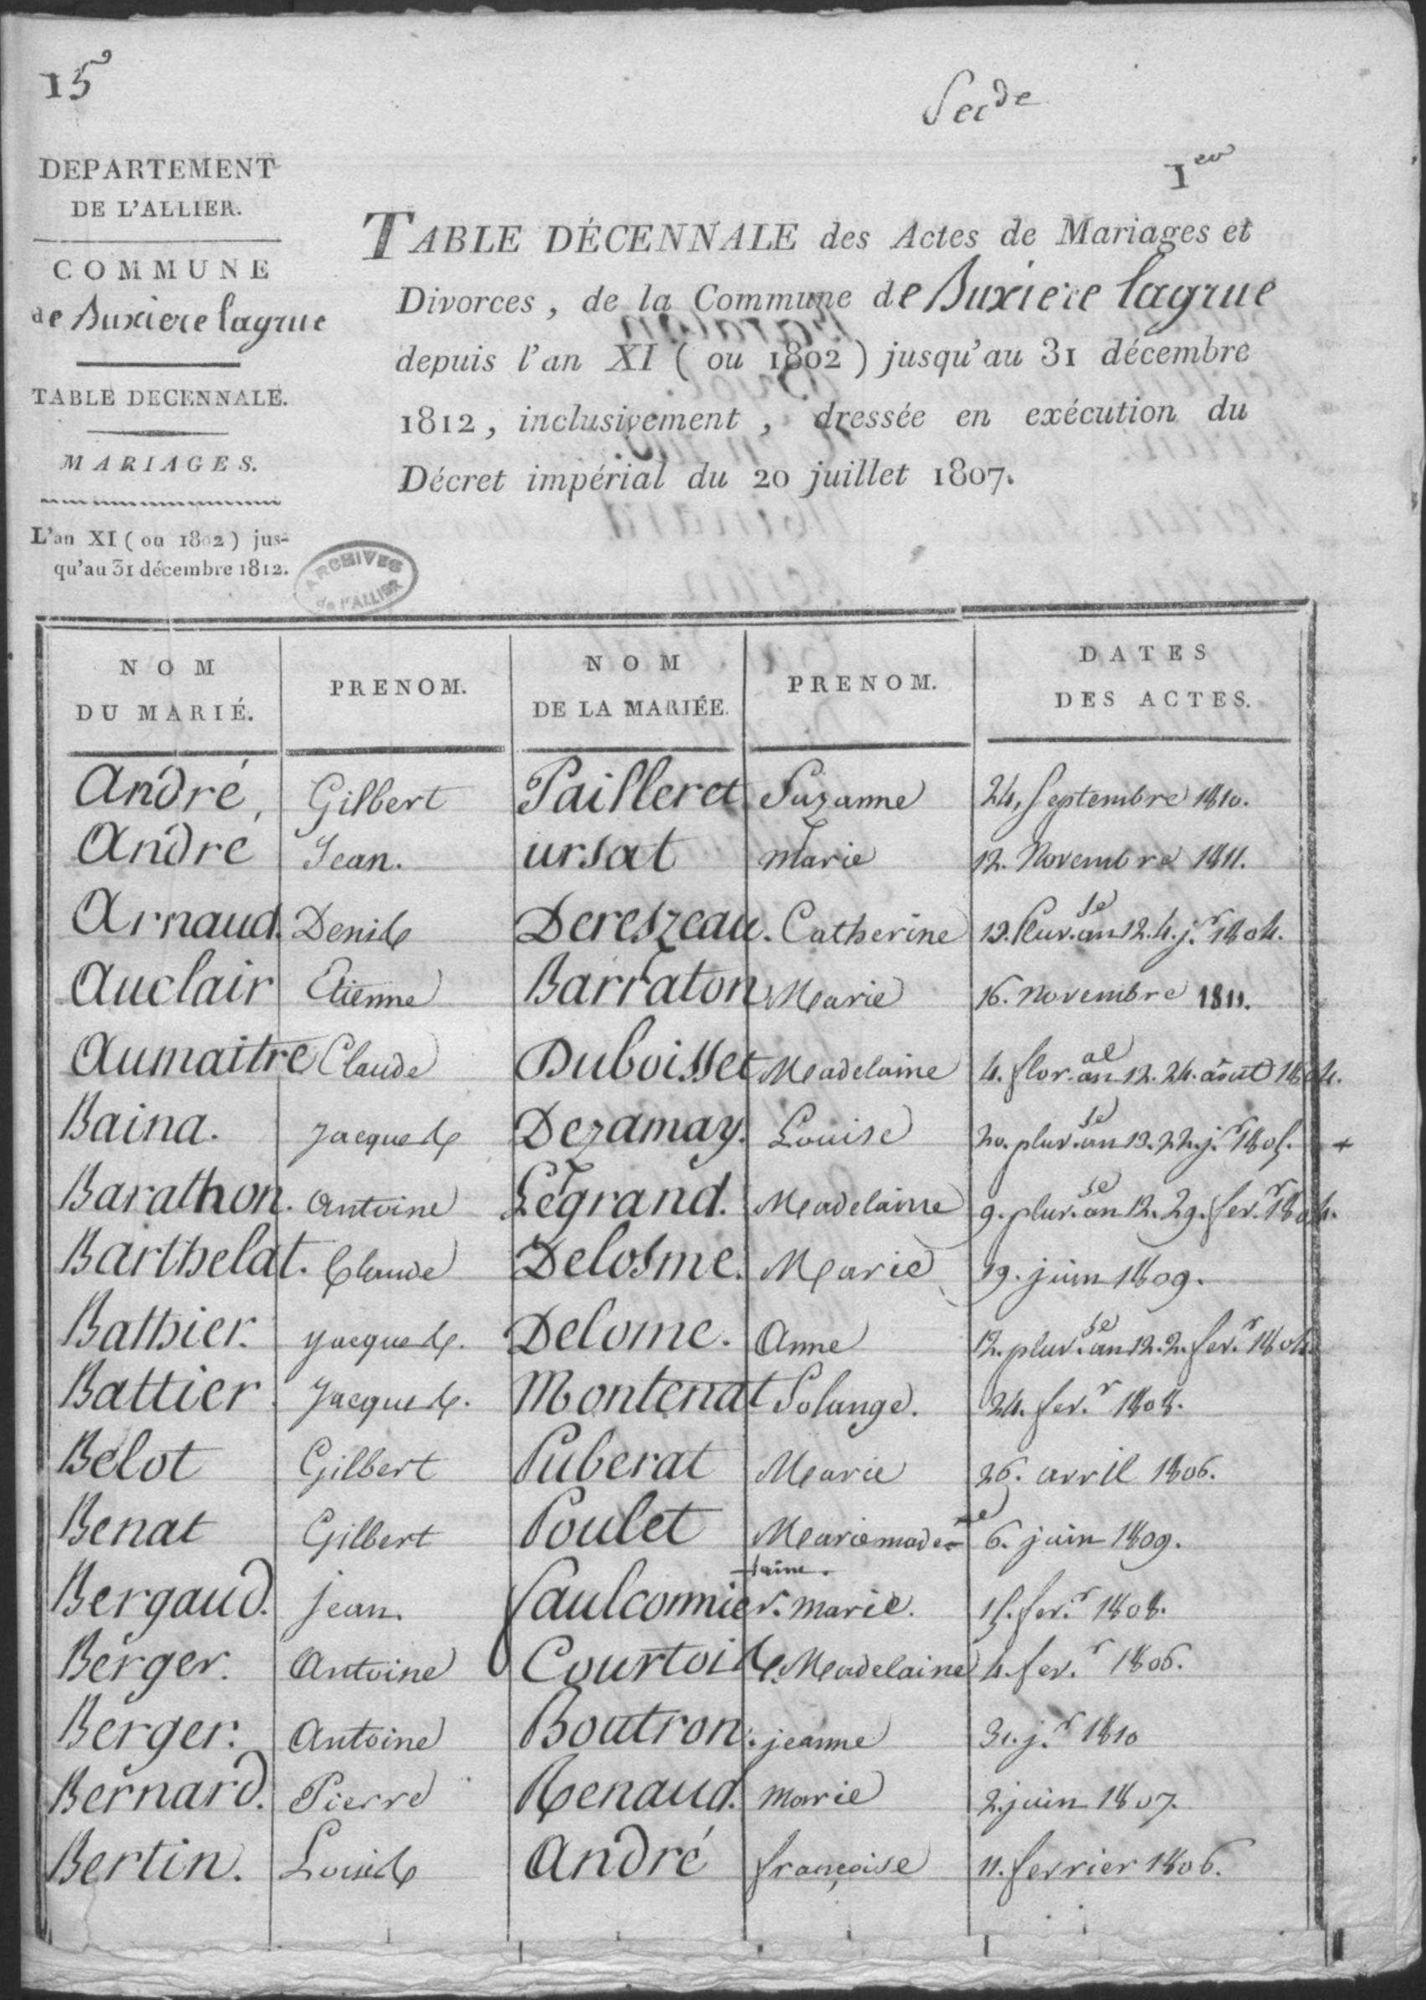 15
Sec.de
1er
DEPARTEMENT
DE L'ALLIER.
COMMUNE
de Buxiere lagrue
TABLE DECENNALE.
MARIAGES.
L'an XI (ou 1802) jus-
qu'au 31 décembre 1812.
ARCHIVES
de l'ALLIER
TABLE DÉCENNALE des Actes de Mariages et
Divorces, de la Commune de Buxiere lagrue
depuis l'an XI (ou 1802) jusqu'au 31 décembre
1812, inclusivement, dressée en exécution du
Décret impérial du 20 juillet 1807.
NOM DU MARIÉ. PRENOM. NOM DE LA MARIÉE. PRENOM. DATES DES ACTES.
André, Gilbert Pailleret Suzanne 24, Septembre 1810.
André Jean. ursat Marie 12. Novembre 1811.
Arnaud. Denis Dereszeau. Catherine 13. pluv.se an 12. 4. j.r 1804.
Auclair Etienne Barraton Marie 16. novembre 1811.
Aumaitre Claude Duboisset Madelaine 4. flor.al an 12. 24. aout 1804.
Baina. Jacques Dezamay. Louise 20. pluv.se an 13. 22. j.r 1805. +
Barathon. Antoine Legrand. Madelaine 9. pluv.se an 12. 29. fev.r 1804.
Barthelat. Claude Delosme. Marie 19. juin 1809.
Bathier. Jacques. Delome. Anne 12. pluv.se an 12. 2. fev.r 1804.
Battier. Jacques. Montenat Solange. 24. fev.r 1808.
Belot Gilbert Puberat Marie 26. avril 1806.
Benat Gilbert Poulet Marie made- 6. juin 1809.
laine.
Bergaud. jean. faulconnier. marie. 15. fev.r 1808.
Berger. Antoine Courtois. Madelaine 4. fev.r 1806.
Berger. Antoine Boutron. jeanne 31. j.r 1810
Bernard. Pierre Renaud. Marie 2. juin 1807.
Bertin. Louis André françoise 11. fevrier 1806.